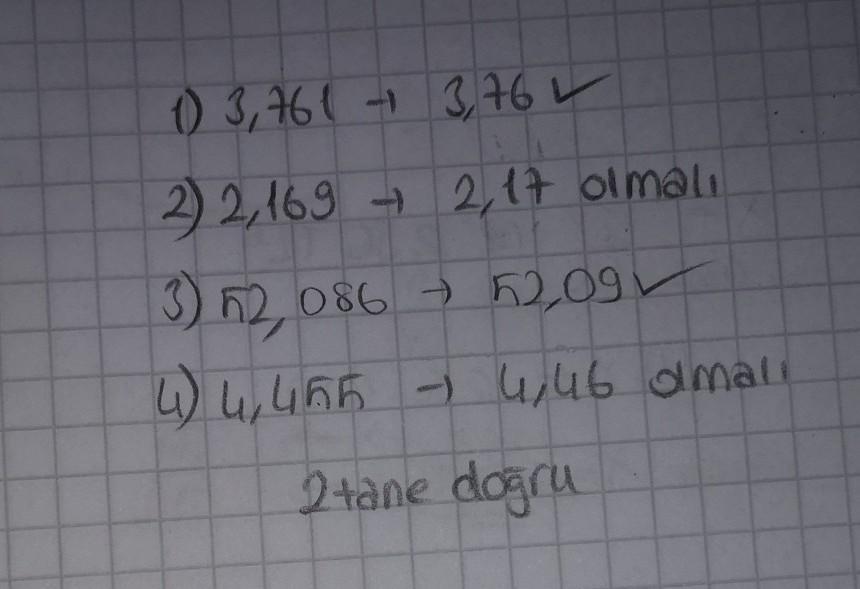 1) 3,761 → 3,76 ✓
2) 2,169 → 2,17 olmalı
3) 52,086 → 52,09 ✓
4) 4,455 → 4,46 olmalı
2 tane doğru